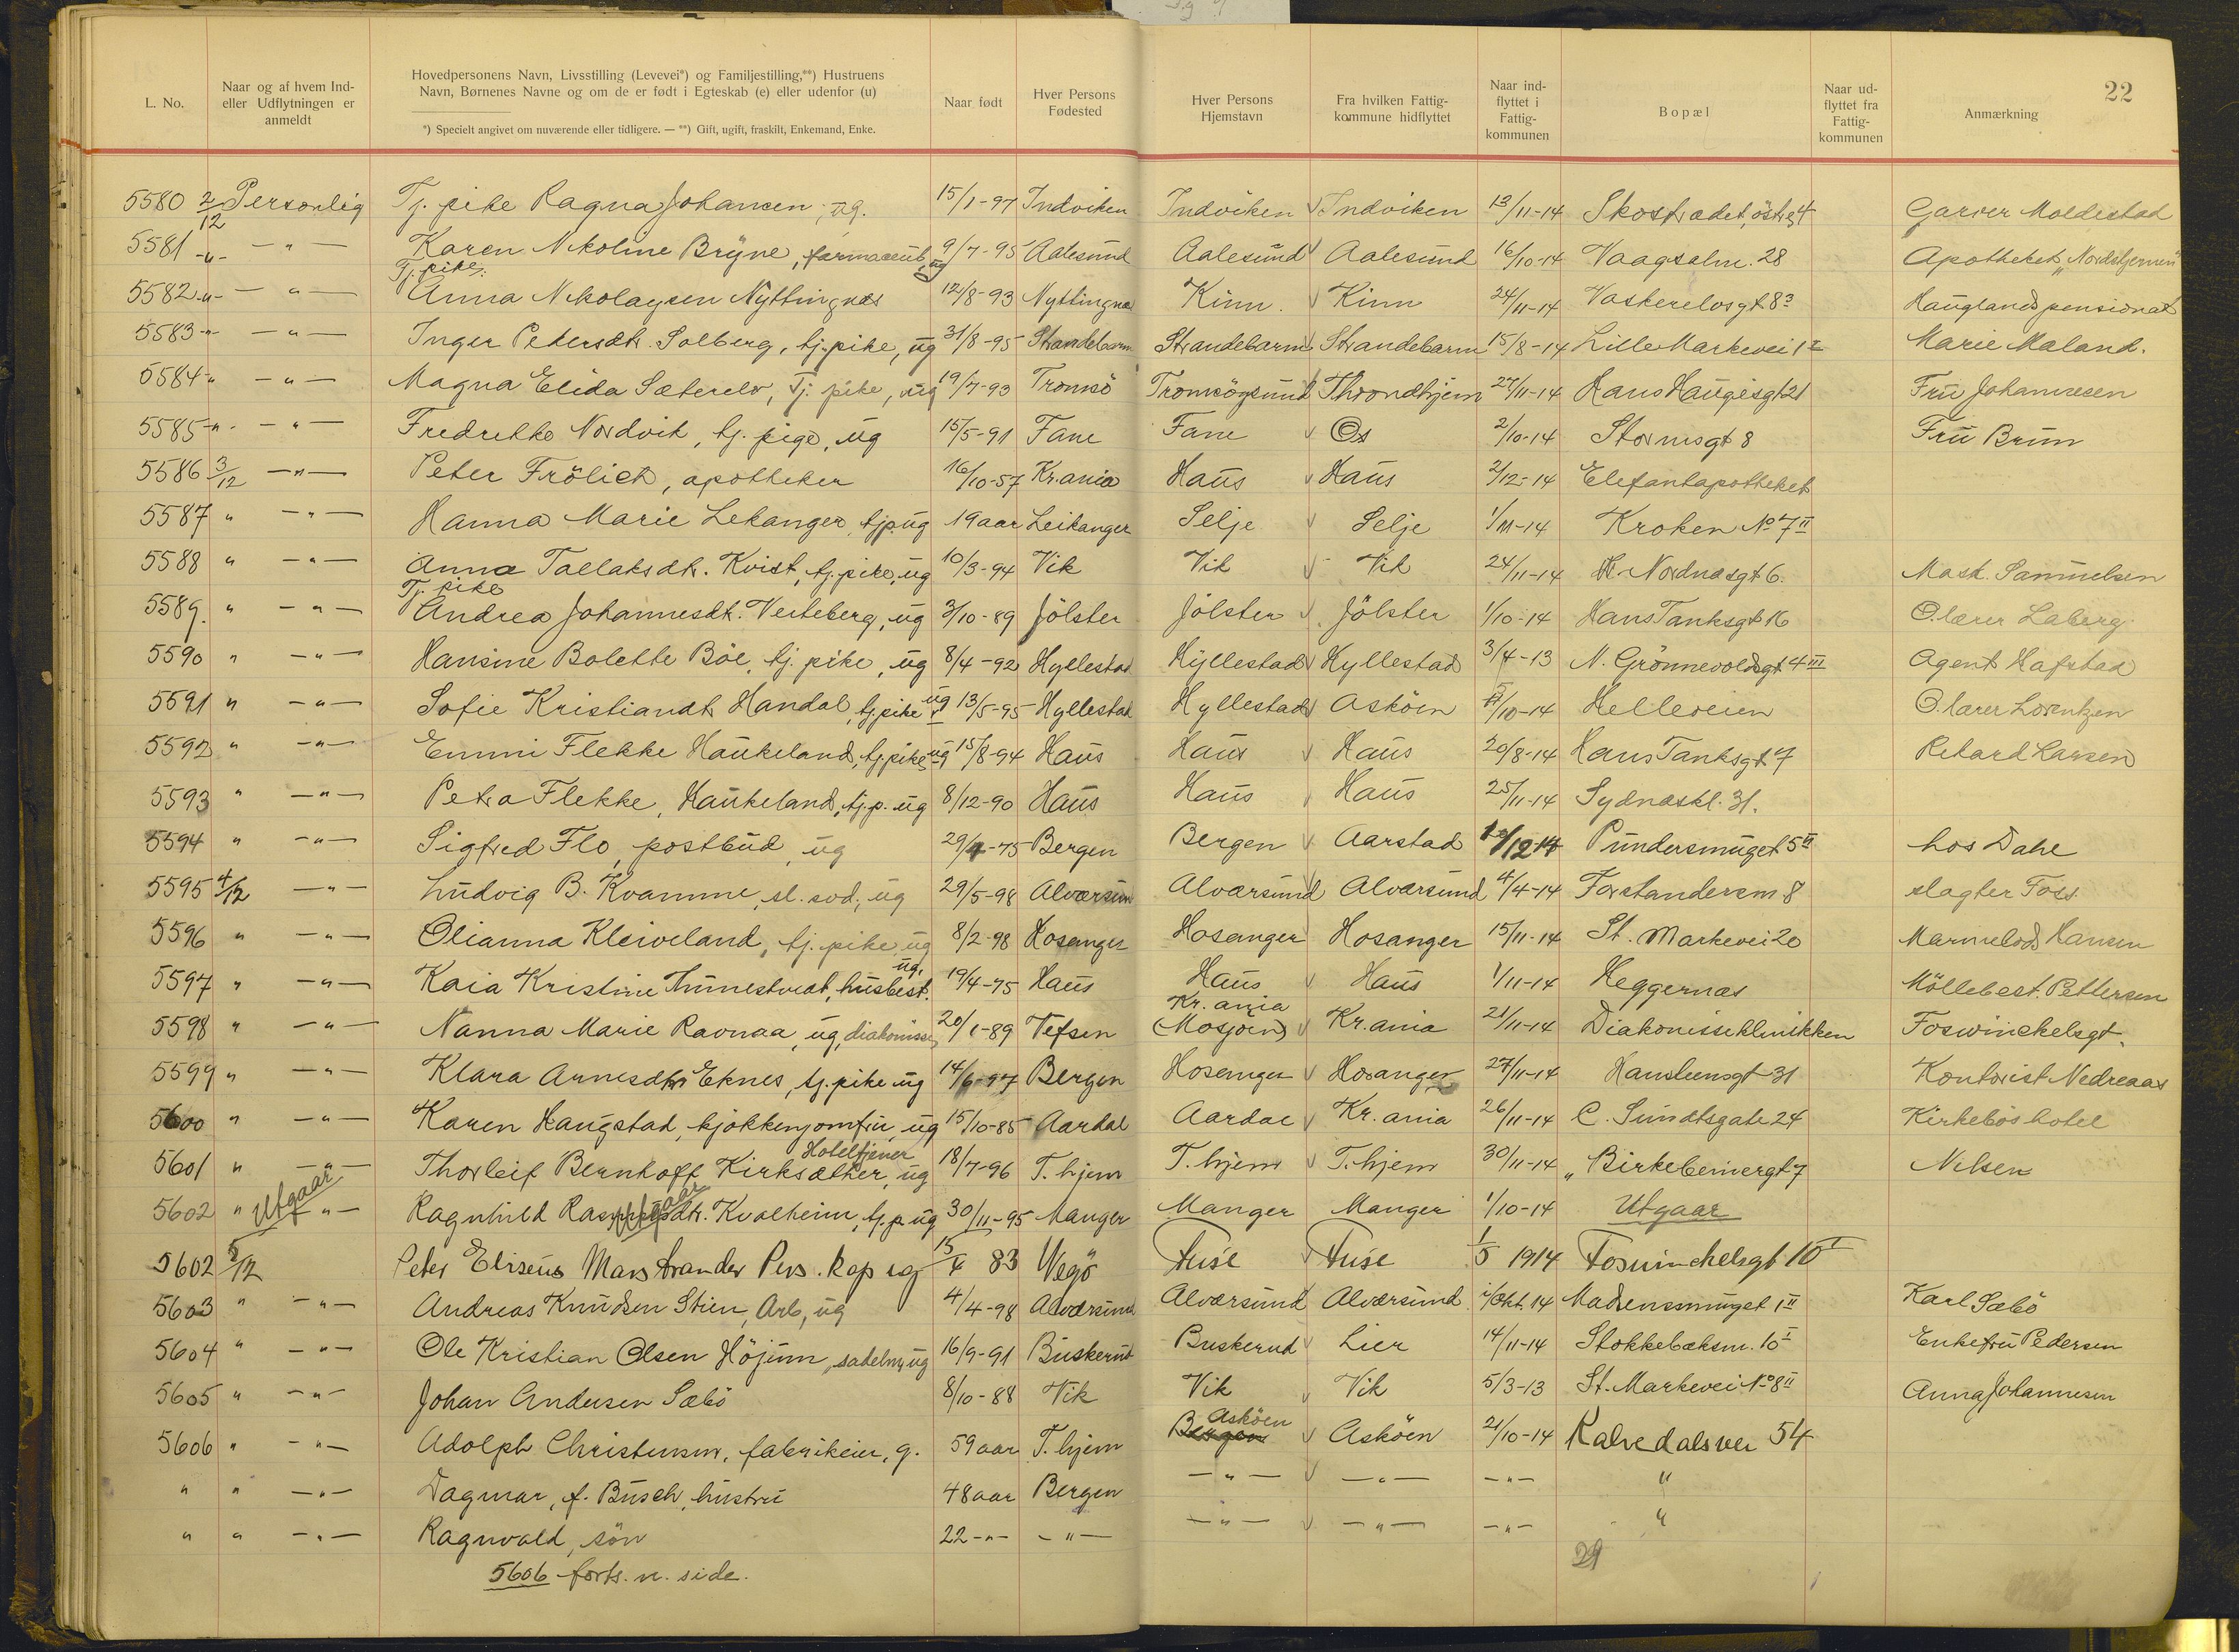 22
L. No. | Naar og af hvem Ind- eller Udflytningen er anmeldt | Hovedpersonens Navn, Livsstilling (Levevei*) og Familjestilling,**) Hustruens Navn, Børnenes Navne og om de er født i Egteskab (e) eller udenfor (u) | Naar født | Hver Persons Fødested | Hver Persons Hjemstavn | Fra hvilken Fattig- kommune hidflyttet | Naar ind- flyttet i Fattig- kommunen | Bopæl | Naar ud- flyttet fra Fattig- kommunen | Anmærkning
*) Specielt angivet om nuværende eller tidligere. — **) Gift, ugift, fraskilt, Enkemand, Enke.
5580 2/12 Personlig Tj. pike Ragna Johansen, ug. 15/1-97 Indviken Indviken Indviken 13/11-14 Skostrædet, østre 4 Garver Moldestad
5581 -"- -"- Karen Nikoline Brÿne, farmaceut, ug 9/7-95 Aalesund Aalesund Aalesund 16/10-14 Vaagsalm. 28 Apotheket "Nordstjernen"
5582 -"- -"- Tj. pike. Anna Nikolaysen Nyttingnæs 12/8-93 Nyttingnæs Kinn. Kinn 24/11-14 Vaskerelvsgt 8³ Hauglands pensionat
5583 -"- -"- Inger Pedersdtr. Solberg, tj. pike, ug 31/8-95 Strandebarm Strandebarm Strandebarm 15/8-14 Lille Markevei 1 Marie Maland.
5584 " -"- Magna Elida Sæterelv, Tj. pike, ug 19/7-93 Tromsö Tromsöysund Throndhjem 27/11-14 Hans Haugesgt 21 Fru Johannesen
5585 -"- -"- Fredrikke Nordvik, tj. pige, ug 15/5-91 Fane Fane Os 2/10-14 Stormsgt 8 Fru Brun
5586 3/12 -"- Peter Frölich, apotheker 16/10-57 Kr.ania Haus Haus 2/12-14 Elefantapotheket
5587 " -"- Hanna Marie Lekanger, tjp. ug 19 aar Leikanger Selje Selje 1/11-14 Kroken No 7 II
5588 " -"- Anna Tallaksdtr. Kvist, tj. pike, ug 10/3-94 Vik Vik Vik 24/11-14 Nordnæsgt 6. Mask. Samuelsen
5589. " -"- Tj. pike Andrea Johannesdtr. Veiteberg, ug 3/10-89 Jölster Jölster Jölster 1/10-14 Hans Tanksgt 16 O. lærer Laberg
5590 " -"- Hansine Bolette Böe, tj. pike, ug 8/4-92 Hyllestad Hyllestad Hyllestad 3/4-13 N. Grönnevoldsgt 4 III Agent Hafstad
5591 " -"- Sofie Kristiandtr Handal, tj. pike ug 13/5-95 Hyllestad Hyllestad Asköen /10-14 Helleveien O. lærer Lorentzen
5592 " -"- Emmi Flekke Haukeland, tj. pike ug 15/8-94 Haus Haus Haus 20/8-14 Hans Tanksgt 7 Rikard Larsen
5593 " -"- Petra Flekke, Haukeland, tj. p. ug 8/12-90 Haus Haus Haus 25/11-14 Sydnæskl. 31.
5594 " -"- Sigfred Flo, postbud, ug 29/4-75 Bergen Bergen Aarstad /12-14 Pundersmuget 5 II hos Dahe
5595 4/12 -"- Ludvig B. Kvamme, sl. svd., ug 29/5-98 Alversund Alværsund Alværsund 4/4-14 Forstandersm 8 slagter Foss
5596 " -"- Olianna Kleiveland, tj. pike ug 8/2-98 Hosanger Hosanger Hosanger 15/11-14 St. Markevei 20 Marmelads Hansen
5597 " -"- Kaia Kristine Tunestvedt, husbest. ug. 19/4-75 Haus Haus Haus 1/11-14 Heggernæs Möllebest. Pettersen
5598 " -"- Nanna Marie Ravnaa, ug, diakonisse 20/1-89 Vefsen Kr.ania (Mosjøen) Kr.ania 21/11-14 Diakonisseklinikken Foswinckelsgt.
5599 " -"- Klara Arnesdtr Eknes, tj. pike ug 14/6-97 Bergen Hosanger Hosanger 27/11-14 Hansteensgt 31 Kontorist Nedreaas
5600 " -"- Karen Haugstad, kjøkkenjomfru, ug 15/10-85 Aardal Aardal Kr.ania 26/11-14 C. Sundtsgate 24 Kirkebös hotel
5601 " -"- Thorleif Bernhoff Kirksæther, Hoteltjener ug 18/7-96 T. hjem T. hjem T. hjem 30/11-14 " Birkebeinergt 7 Nilsen
5602 " Utgaar -"- Ragnhild Rasmusdtr. Utgaar Kvalheim, tj. p. ug 30/11-95 Manger Manger Manger 1/10-14 Utgaar
5602 5/12 Peter Eliseus Mars trander Pers. kap ug 15/4 83 Vegö Fuse Fuse 1/5 1914 Foswinckelsgt 10 I
5603 " -"- Andreas Knudsen Stien, Arb, ug 4/4-98 Alværsund Alværsund Alværsund 1/okt. 14 Madsensmuget 1 II Karl Sæbö
5604 " -"- Ole Kristian Olsen Höjum, sadelm, ug 16/9-91 Buskerud Buskerud Lier 14/11-14 Stokkebæksm. 10 I Enkefru Pedersen
5605 " -"- Johan Andersen Sæbö 8/10-88 Vik Vik Vik 5/3-13 St. Markevei No 8 II Anna Johannesen
5606 " -"- Adolph Christensen, fabrikeier, g. 59 aar T. hjem Bergen Asköen Asköen 21/10-14 Kalvedalsvei 54
" " -"- Dagmar, f. Busch, hustru 48 aar Bergen -"- -"- -"- "
" " -"- Ragnvald, sön 22 -"- -"- -"- -"- -"- "
5606 forts. n. side.
29